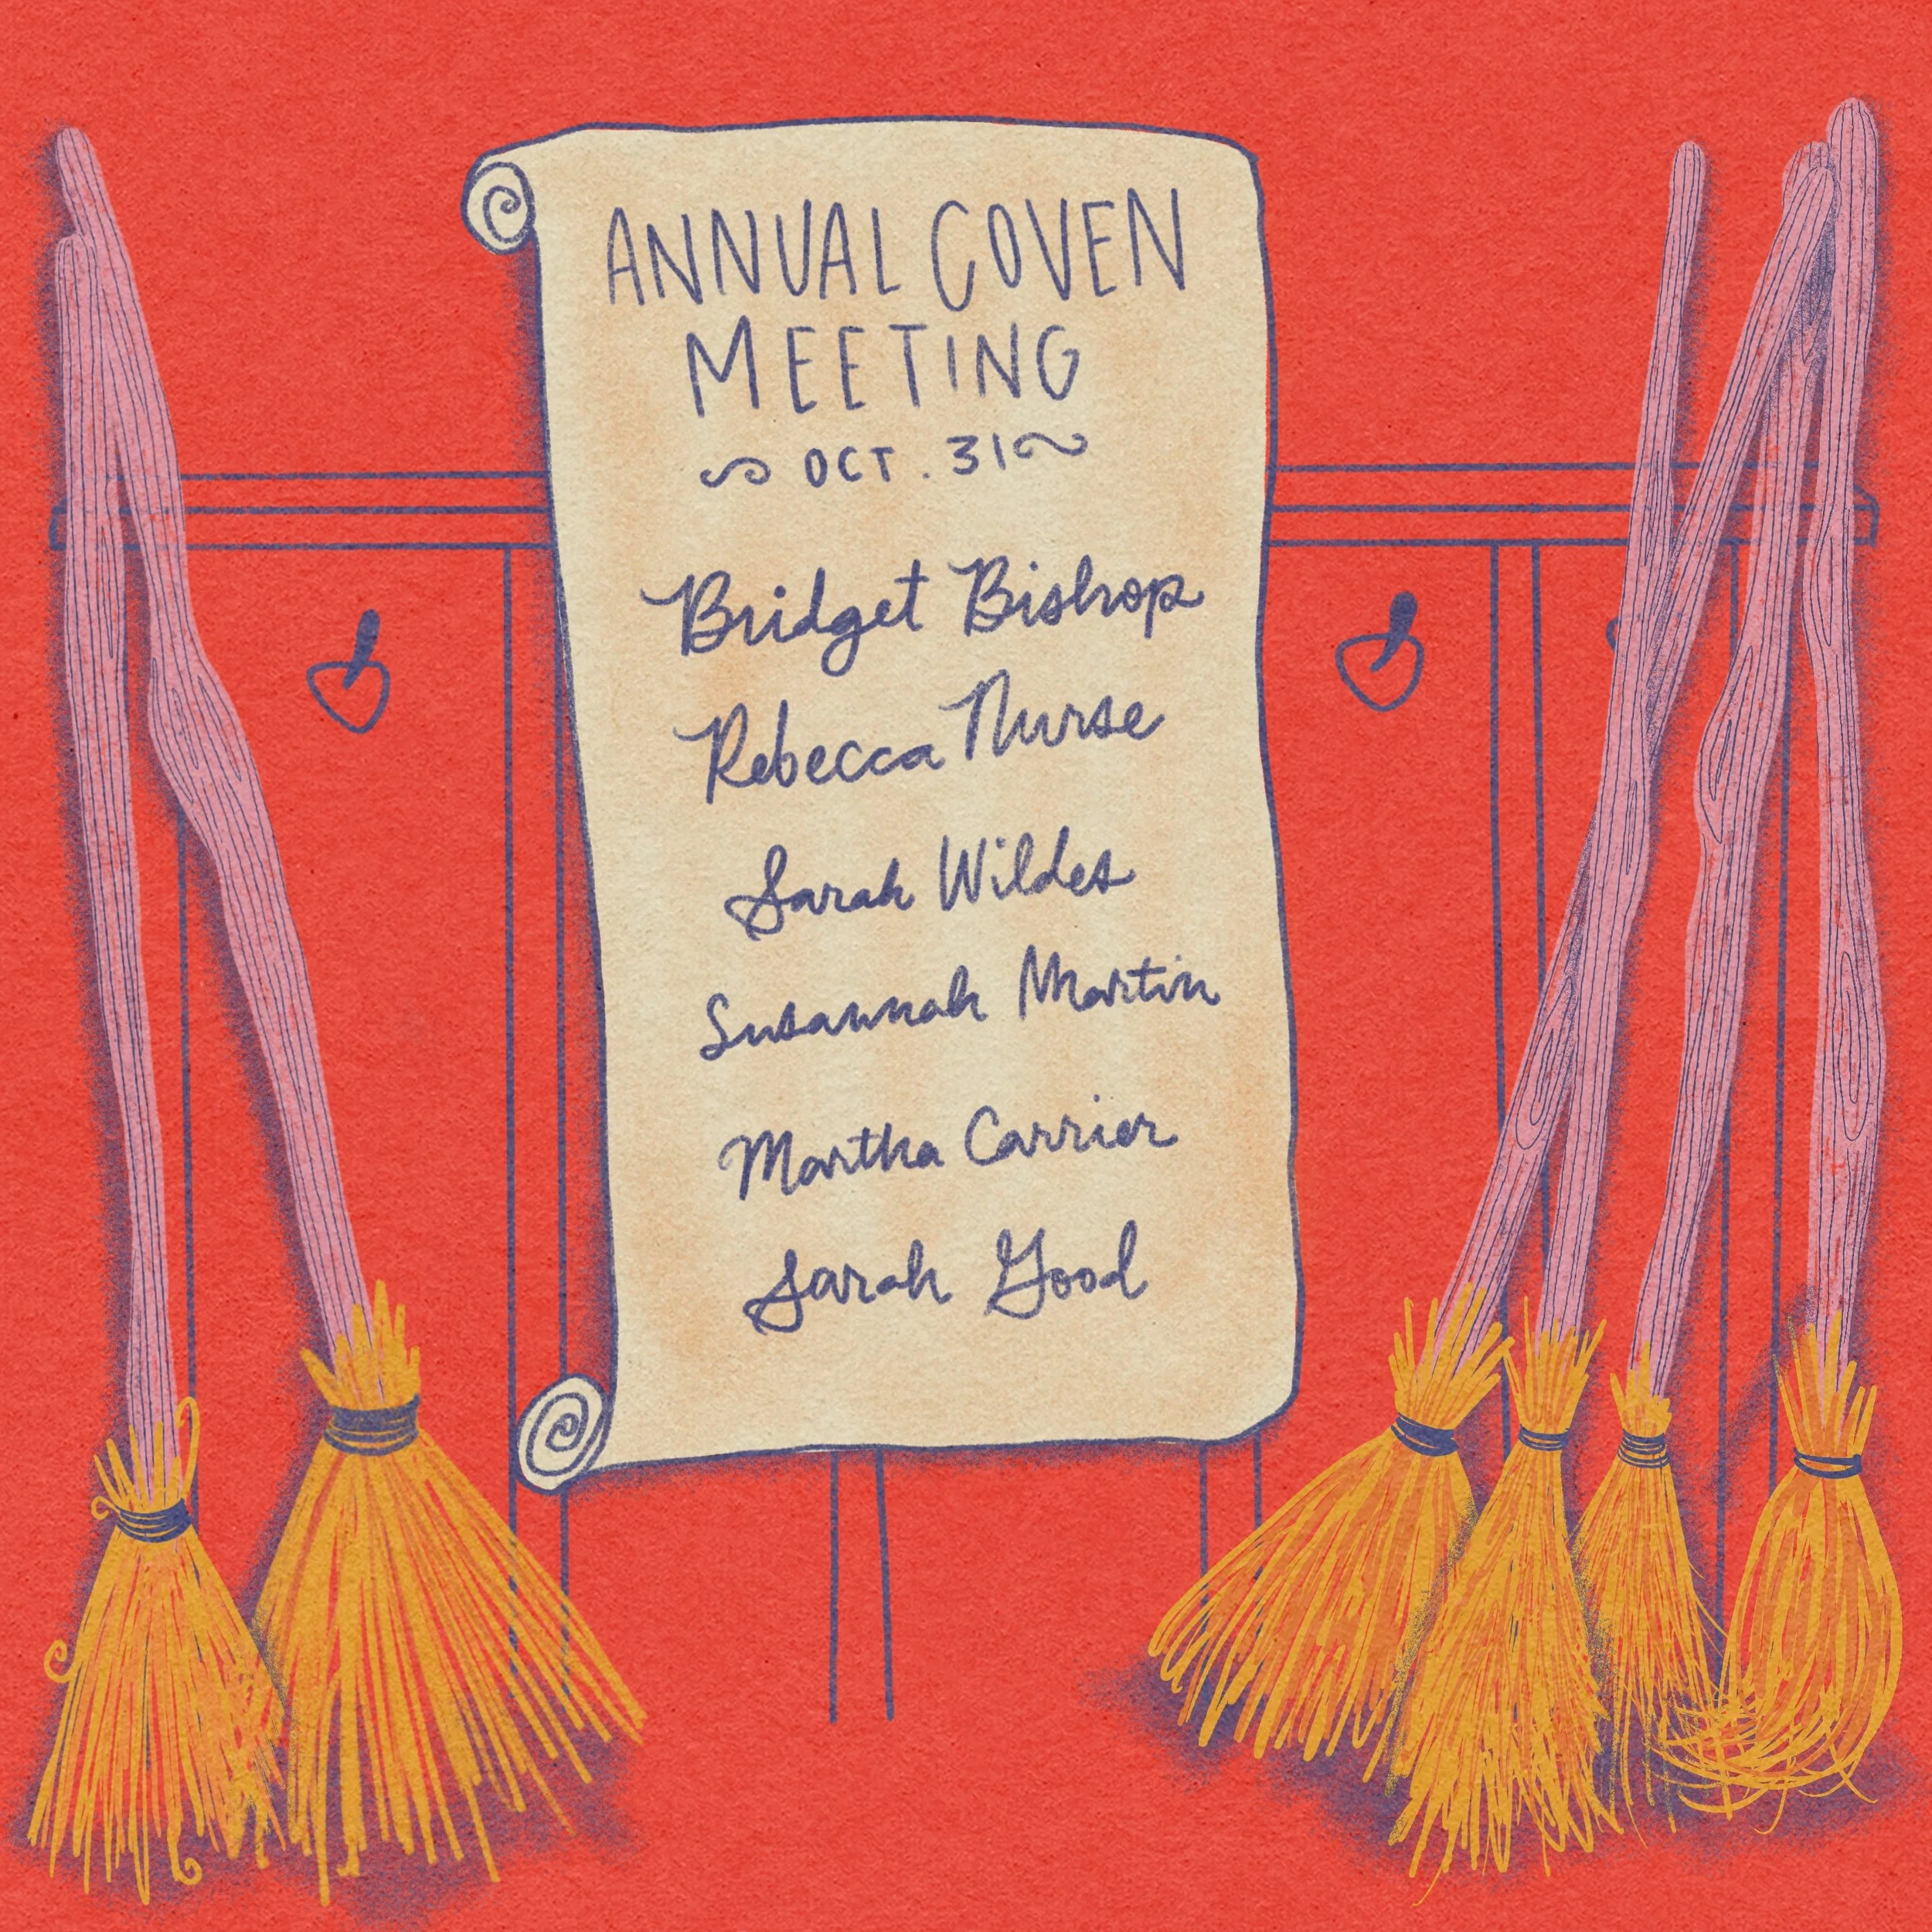 ANNUAL COVEN
MEETING
OCT. 31
Bridget Bishop
Rebecca Nurse
Sarah Wildes
Susannah Martin
Martha Carrier
Sarah Good